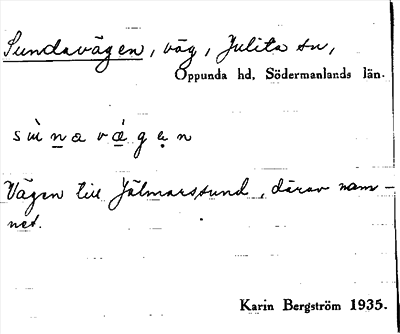 Sundavägen, väg, Julita sn,
Oppunda hd, Södermanlands län.
sùnavǻgẹn
Vägen till Jälmarssund, därav nam-
net.
Karin Bergström 1935.